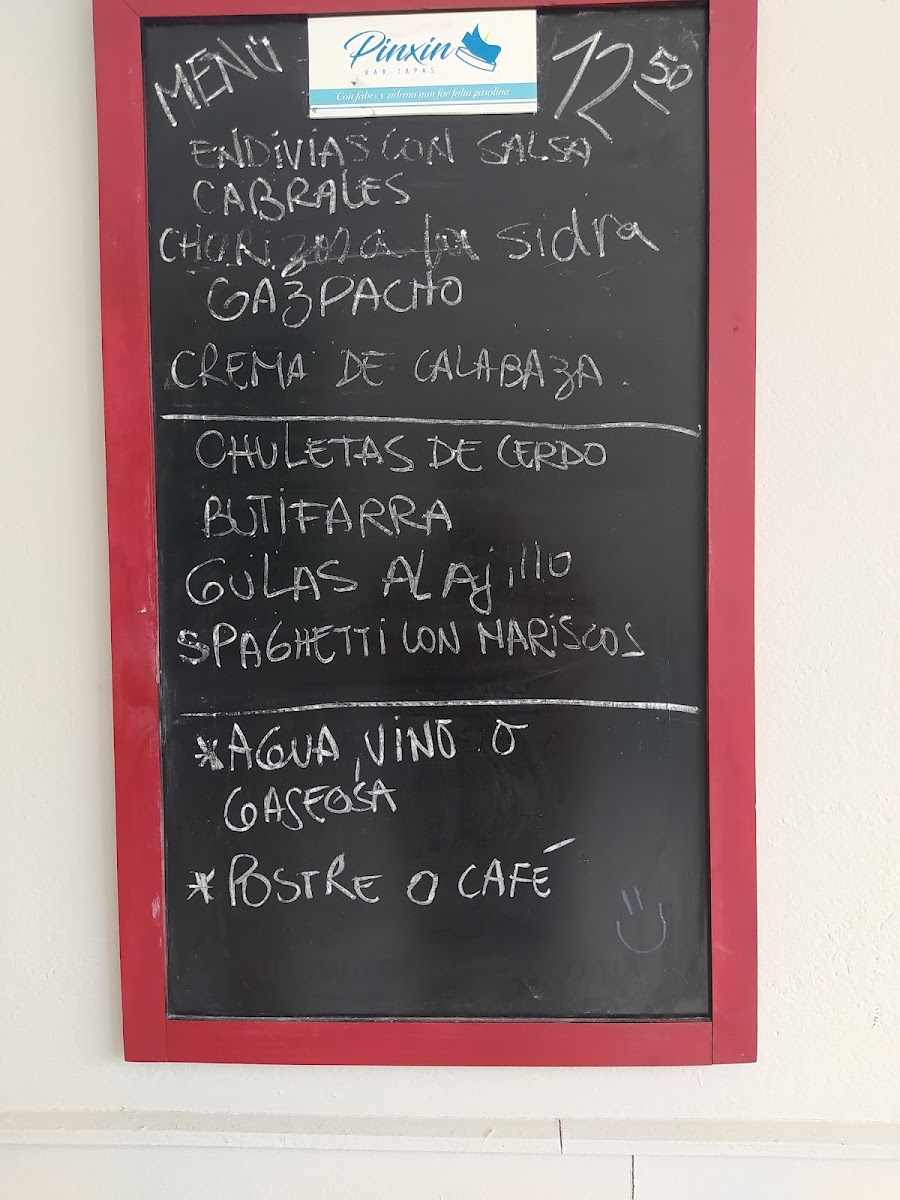 Pinxin
BAR-TAPAS
Con fabes y sidrina nun fae falta gasolina
MENÚ 12,50
ENDIVIAS CON SALSA
CABRALES
CHORIZOS a la sidra
GAZPACHO
CREMA DE CALABAZA.
CHULETAS DE CERDO
BUTIFARRA
GULAS AL AjILLO
SPAGHETTI CON MARISCOS
*AGUA, VINO O
GASEOSA
*POSTRE O CAFÉ